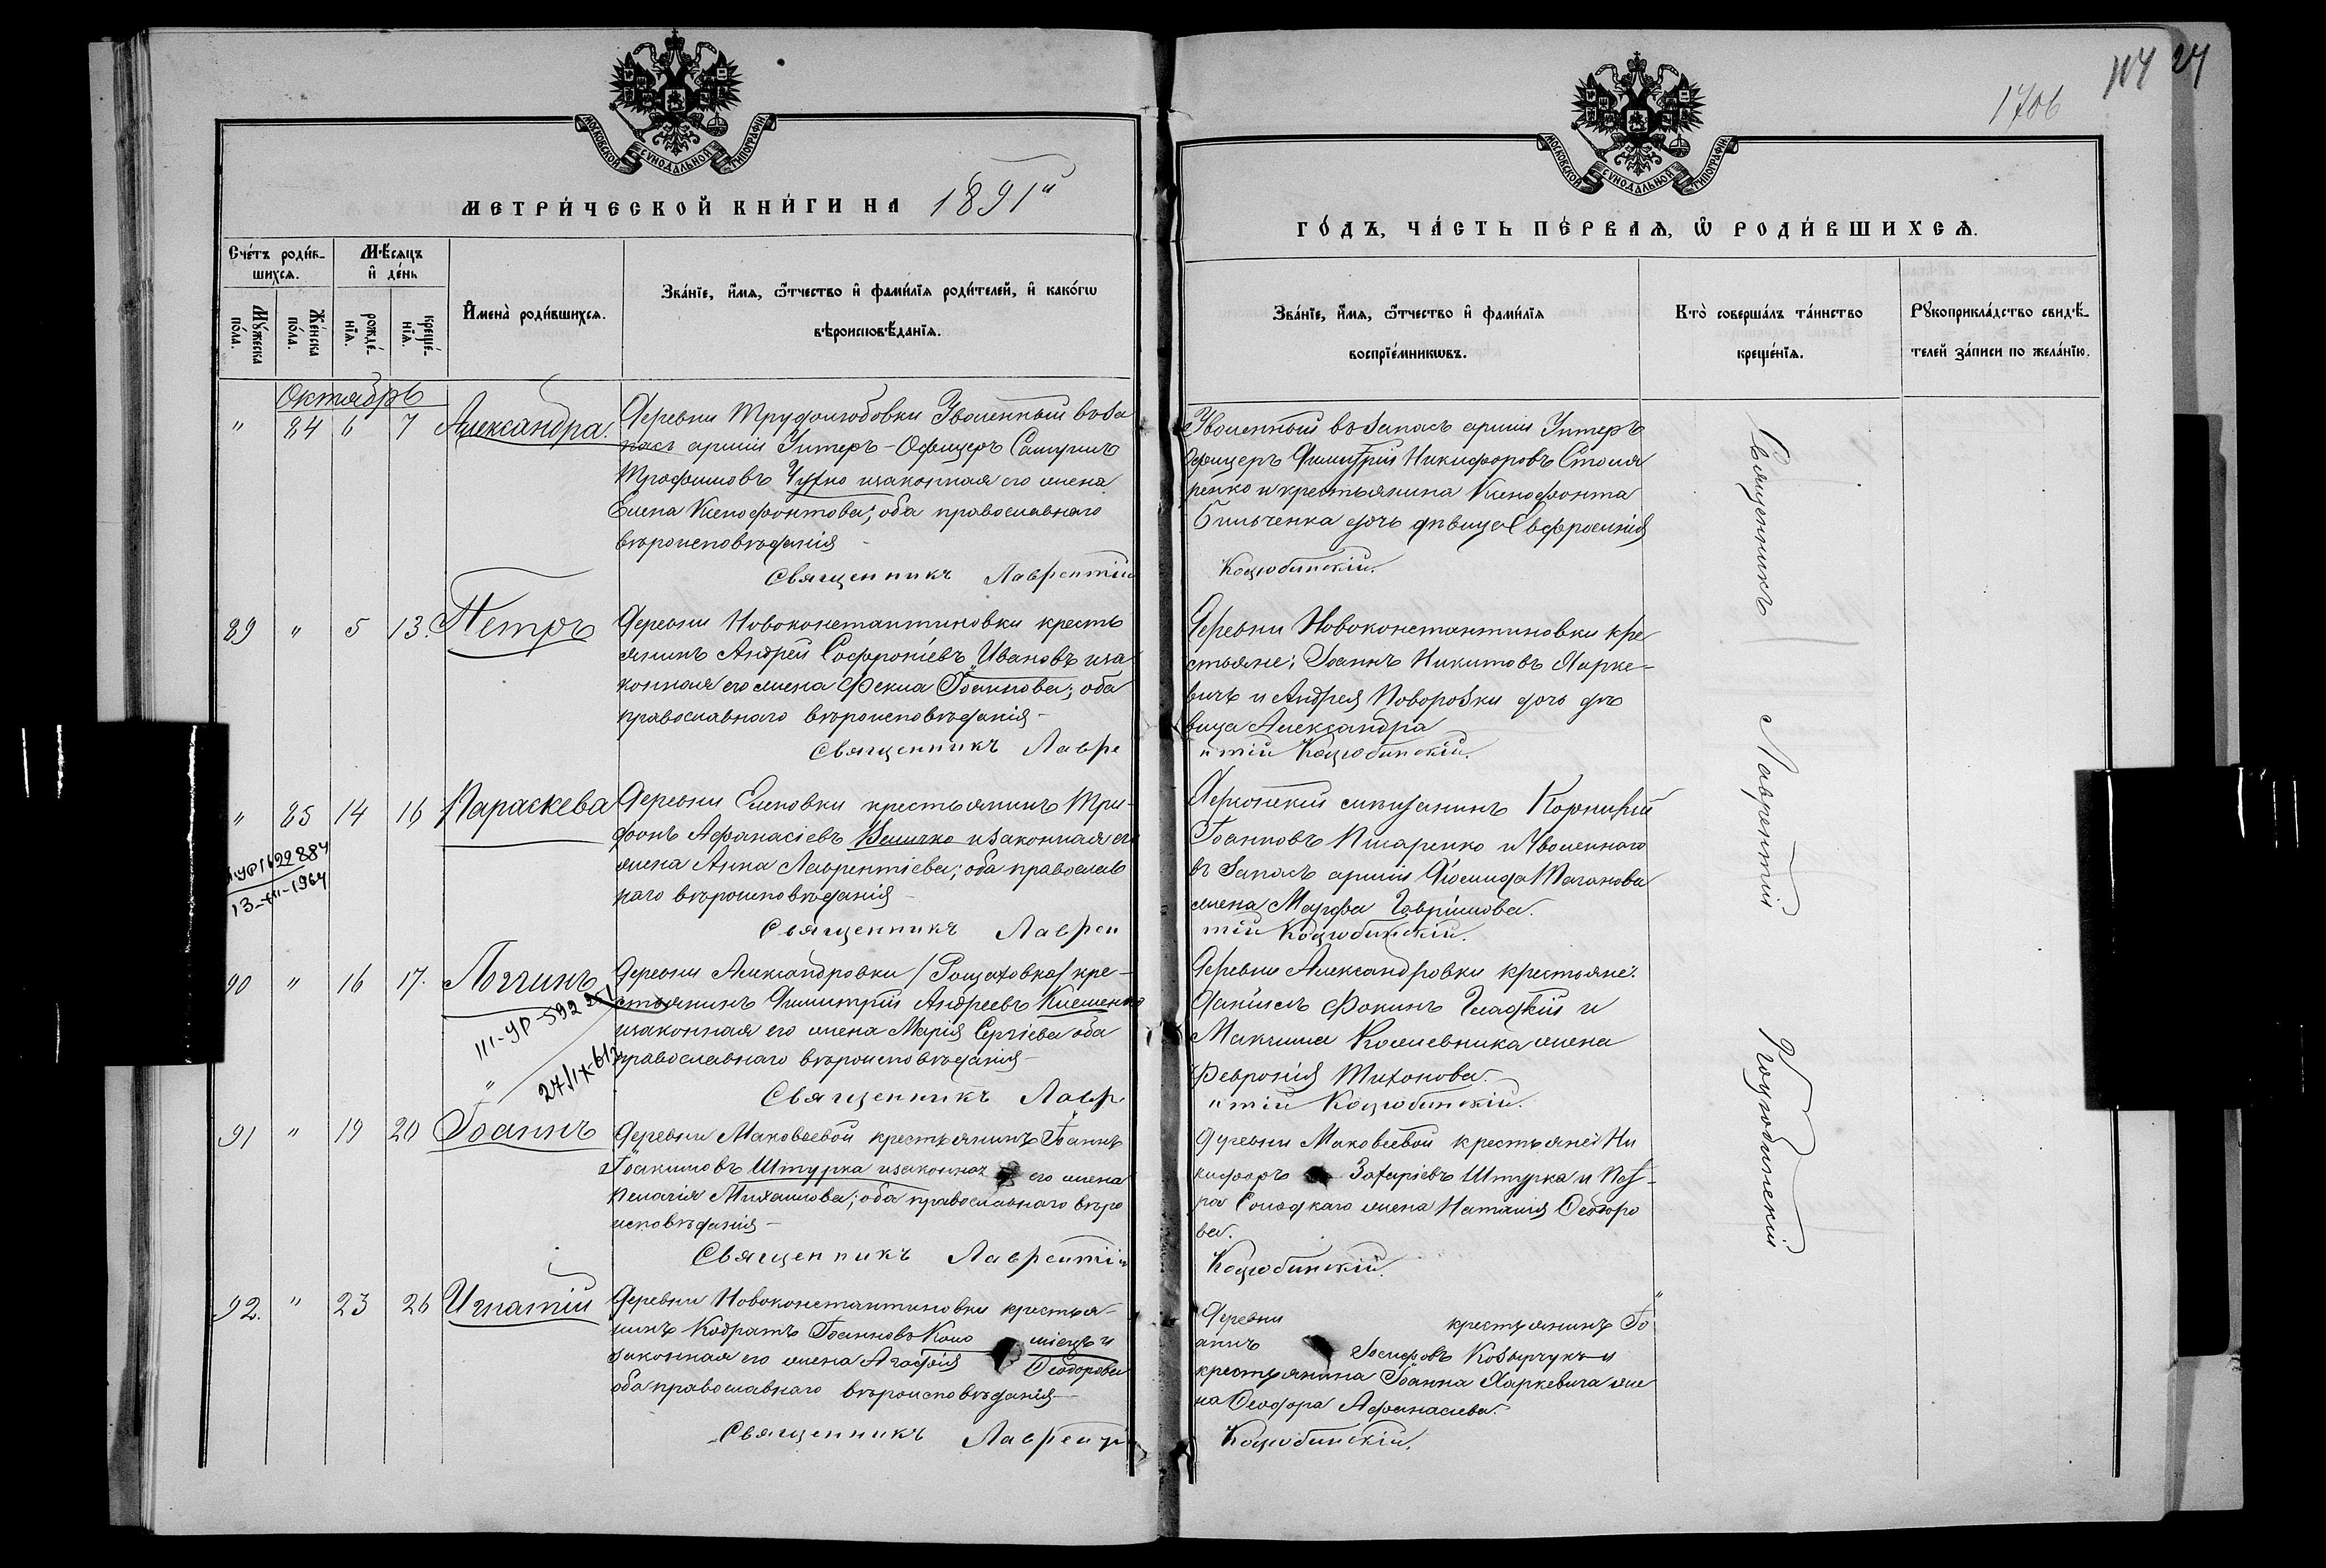 МОСКОВСКОЙ СѴНОДАЛЬНОЙ ТИПОГРАФІИ
МЕТРИ́ЧЕСКОЙ КНИ́ГИ НА 1891й
Сче́тъ роди́в-
шихсѧ.
Мꙋ́жеска
по́ла.
Же́нска
по́ла.
Мѣ́сѧцъ
и҆ де́нь
рожде́-
нїѧ.
креще́-
нїѧ.
И҆мена̀ роди́вшихсѧ.
Зва́нїе, и҆́мѧ, ѻ҆́тчество и҆ фами́лїѧ роди́телей, и҆ како́гѡ
вѣроисповѣ́данїѧ.
Октябрь
" 84 6 7 Александра.
Деревни Трудолюбовки Уволенный въ за
пасъ арміи Унтеръ-Офицеръ Самуилъ
Трофимовъ Чухно и законная его жена
Елена Ксенофонтова; оба православнаго
вѣроисповѣданія
Священникъ Лаврентій
89 " 5 13. Петръ
Деревни Новоконстантиновки кресть
янинъ Андрей Софроніевъ Ивановъ и за
конная его жена Фекла Іоаннова; оба
православнаго вѣроисповѣданія-
Священникъ Лавре
" 85 14 16 Параскева
Деревни Еленовки крестьянинъ Три-
фонъ Аѳанасіевъ Величко и законная его
жена Анна Лаврентіева; оба православ
наго вѣроисповѣданія-
Священникъ Лаврен
1622884
13-XII-1964
90 " 16 17. Логгинъ
Деревни Александровки /Рощаховка/ кре-
стьянинъ Димитрій Андреевъ Клешенко
и законная его жена Марія Сергіева оба
православнаго вѣроисповѣданія-
Священникъ Лавр
III-УР-592251
27/IX-61г
91 " 19 20 Іоаннъ
Деревни Маковеевой крестьянинъ Іоаннъ
Іоакимовъ Штурка и законная его жена
Пелагія Михаилова; оба православнаго вѣро
исповѣданія-
Священникъ Лаврентій
92. " 23 26 Игнатій
Деревни Новоконстантиновки крестья-
нинъ Кодратъ Іоанновъ Коло міецъ и
законная его жена Агафія Ѳеодорова
оба православнаго вѣроисповѣданія-
Священникъ Лаврентій
1706
24
МОСКОВСКОЙ СѴНОДАЛЬНОЙ ТИПОГРАФІИ
ГО́ДЪ, ЧА́СТЬ ПЕ́РВАѦ, Ѡ҆ РОДИ́ВШИХСѦ.
Зва́нїе, и҆́мѧ, ѻ҆́тчество и҆ фами́лїѧ
воспрїе́мникѡвъ.
Кто̀ соверша́лъ та́инство
креще́нїѧ.
Рꙋкоприкла́дство свидѣ́-
телей за́писи по жела́нїю.
Уволенный въ запасъ арміи Унтеръ
Офицеръ Димитрій Никифоровъ Столя
ренко и крестьянина Ксенофонта
Бильченка дочь дѣвица Евфросинія
Коцюбинскій.
Деревни Новоконстантиновки кре
стьяне: Іоаннъ Никитовъ Харке-
вичъ и Андрея Поворозки дочь дѣ
вица Александра
нтій Коцюбинскій.
Херсонскій мѣщанинъ Корнилій
Іоанновъ Писаренко и Уволеннаго
въ запасъ арміи Діомида Таганова
жена Марфа Гавріилова.
тій Коцюбинскій.
Деревни Александровки крестьяне:
Даніилъ Фокинъ Гладкій и
Максима Кожевника жена
Февронія Тихонова.
нтій Коцюбинскій.
Деревни Маковеевой крестьяне: Ни
кифоръ Захаріевъ Штурка и Пет-
ра Солодкаго жена Наталія Ѳеодоро
ва.
Коцюбинскій.
Деревни " крестьянинъ Іо
аннъ Іосифовъ Козырчукъ и
крестьянина Іоанна Харкевича же
на Ѳеодора Аѳанасіева.
Коцюбинскій.
Священникъ Лаврентій Коцюбинскій